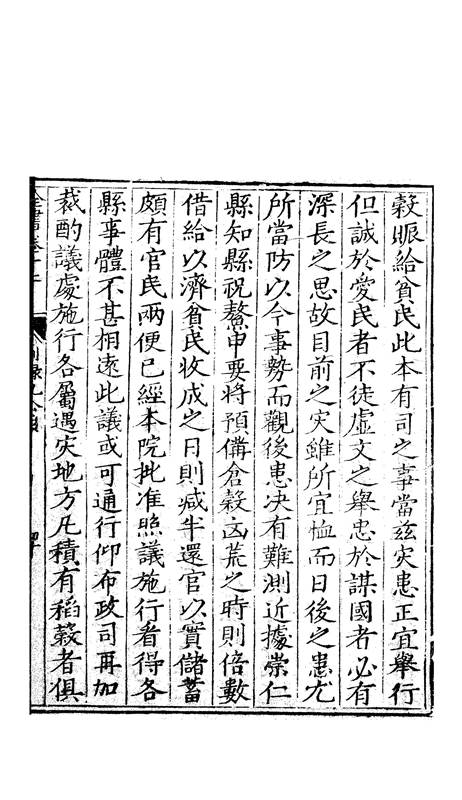 穀賑給貧民此本有司之事當兹灾患正宜舉行
但誠於愛民者不徒虛文之舉忠於謀國者必有
深長之思故目前之灾雖所宜恤而日後之患尤
所當防以今事勢而觀後患决有難測近據崇仁
縣知縣祝鰲申要將預備倉穀凶荒之時則倍數
借給以濟貧民收成之日則减半還官以實儲蓄
頗有官民兩便已經本院批准照議施行看得各
縣事體不甚相遠此議或可通行仰布政司再加
裁酌議處施行各屬遇灾地方凡積有稻穀者俱